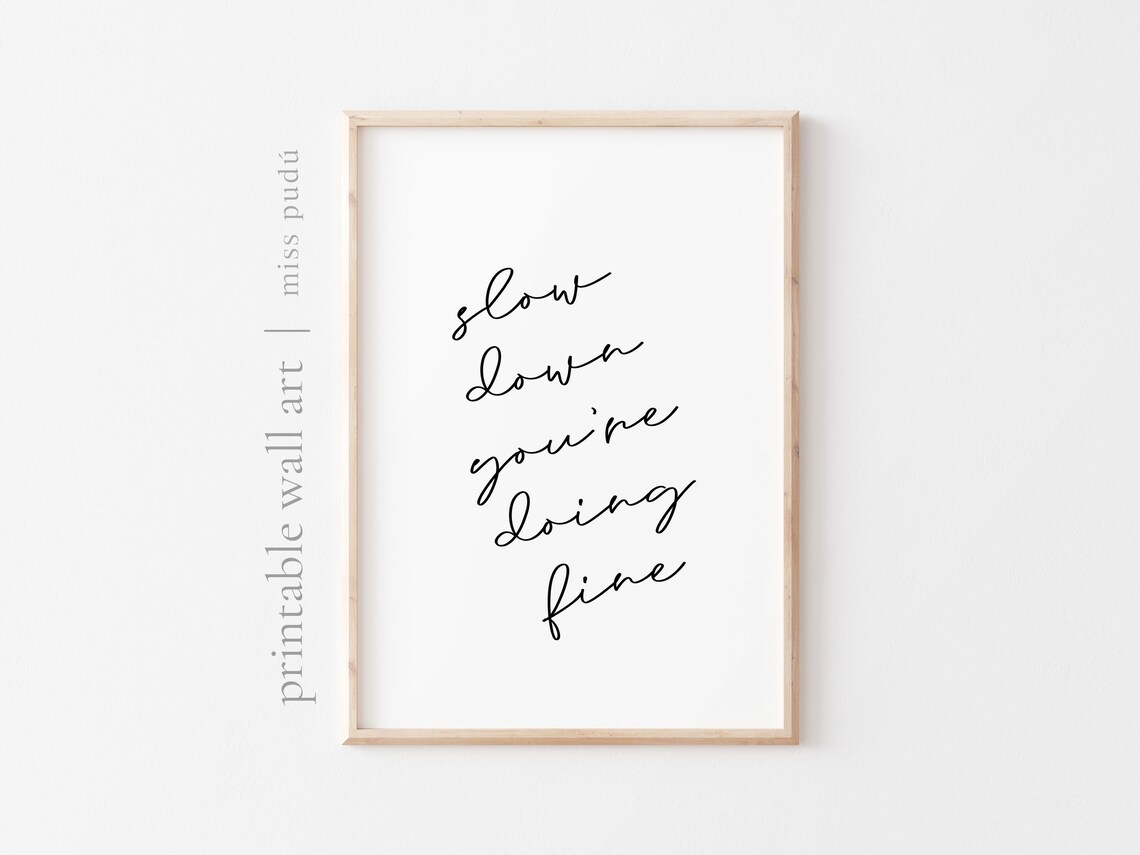 printable wall art | miss pudú
slow
down
you're
doing
fine